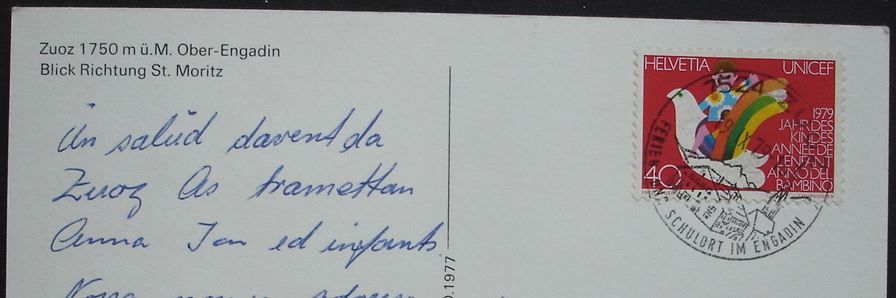 Zuoz 1750 m ü.M. Ober-Engadin
Blick Richtung St. Moritz
Ün salüd davent da
Zuoz As tramettan
Anna Jan ed infants
HELVETIA UNICEF
1979
JAHR DES
KINDES
ANNÉE DE
L'ENFANT
ANNO DEL
BAMBINO
40
7524
SCHULORT IM ENGADIN
.1977